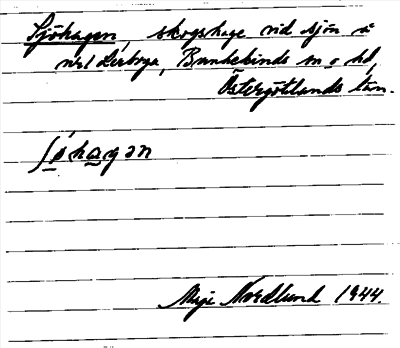 Sjöhagen, skogshage vid sjön å
nr 1 Lerboga, Bankekinds sn o hd,
Östergötlands län.
ʃøhagən
Maji Nordlund 1944.